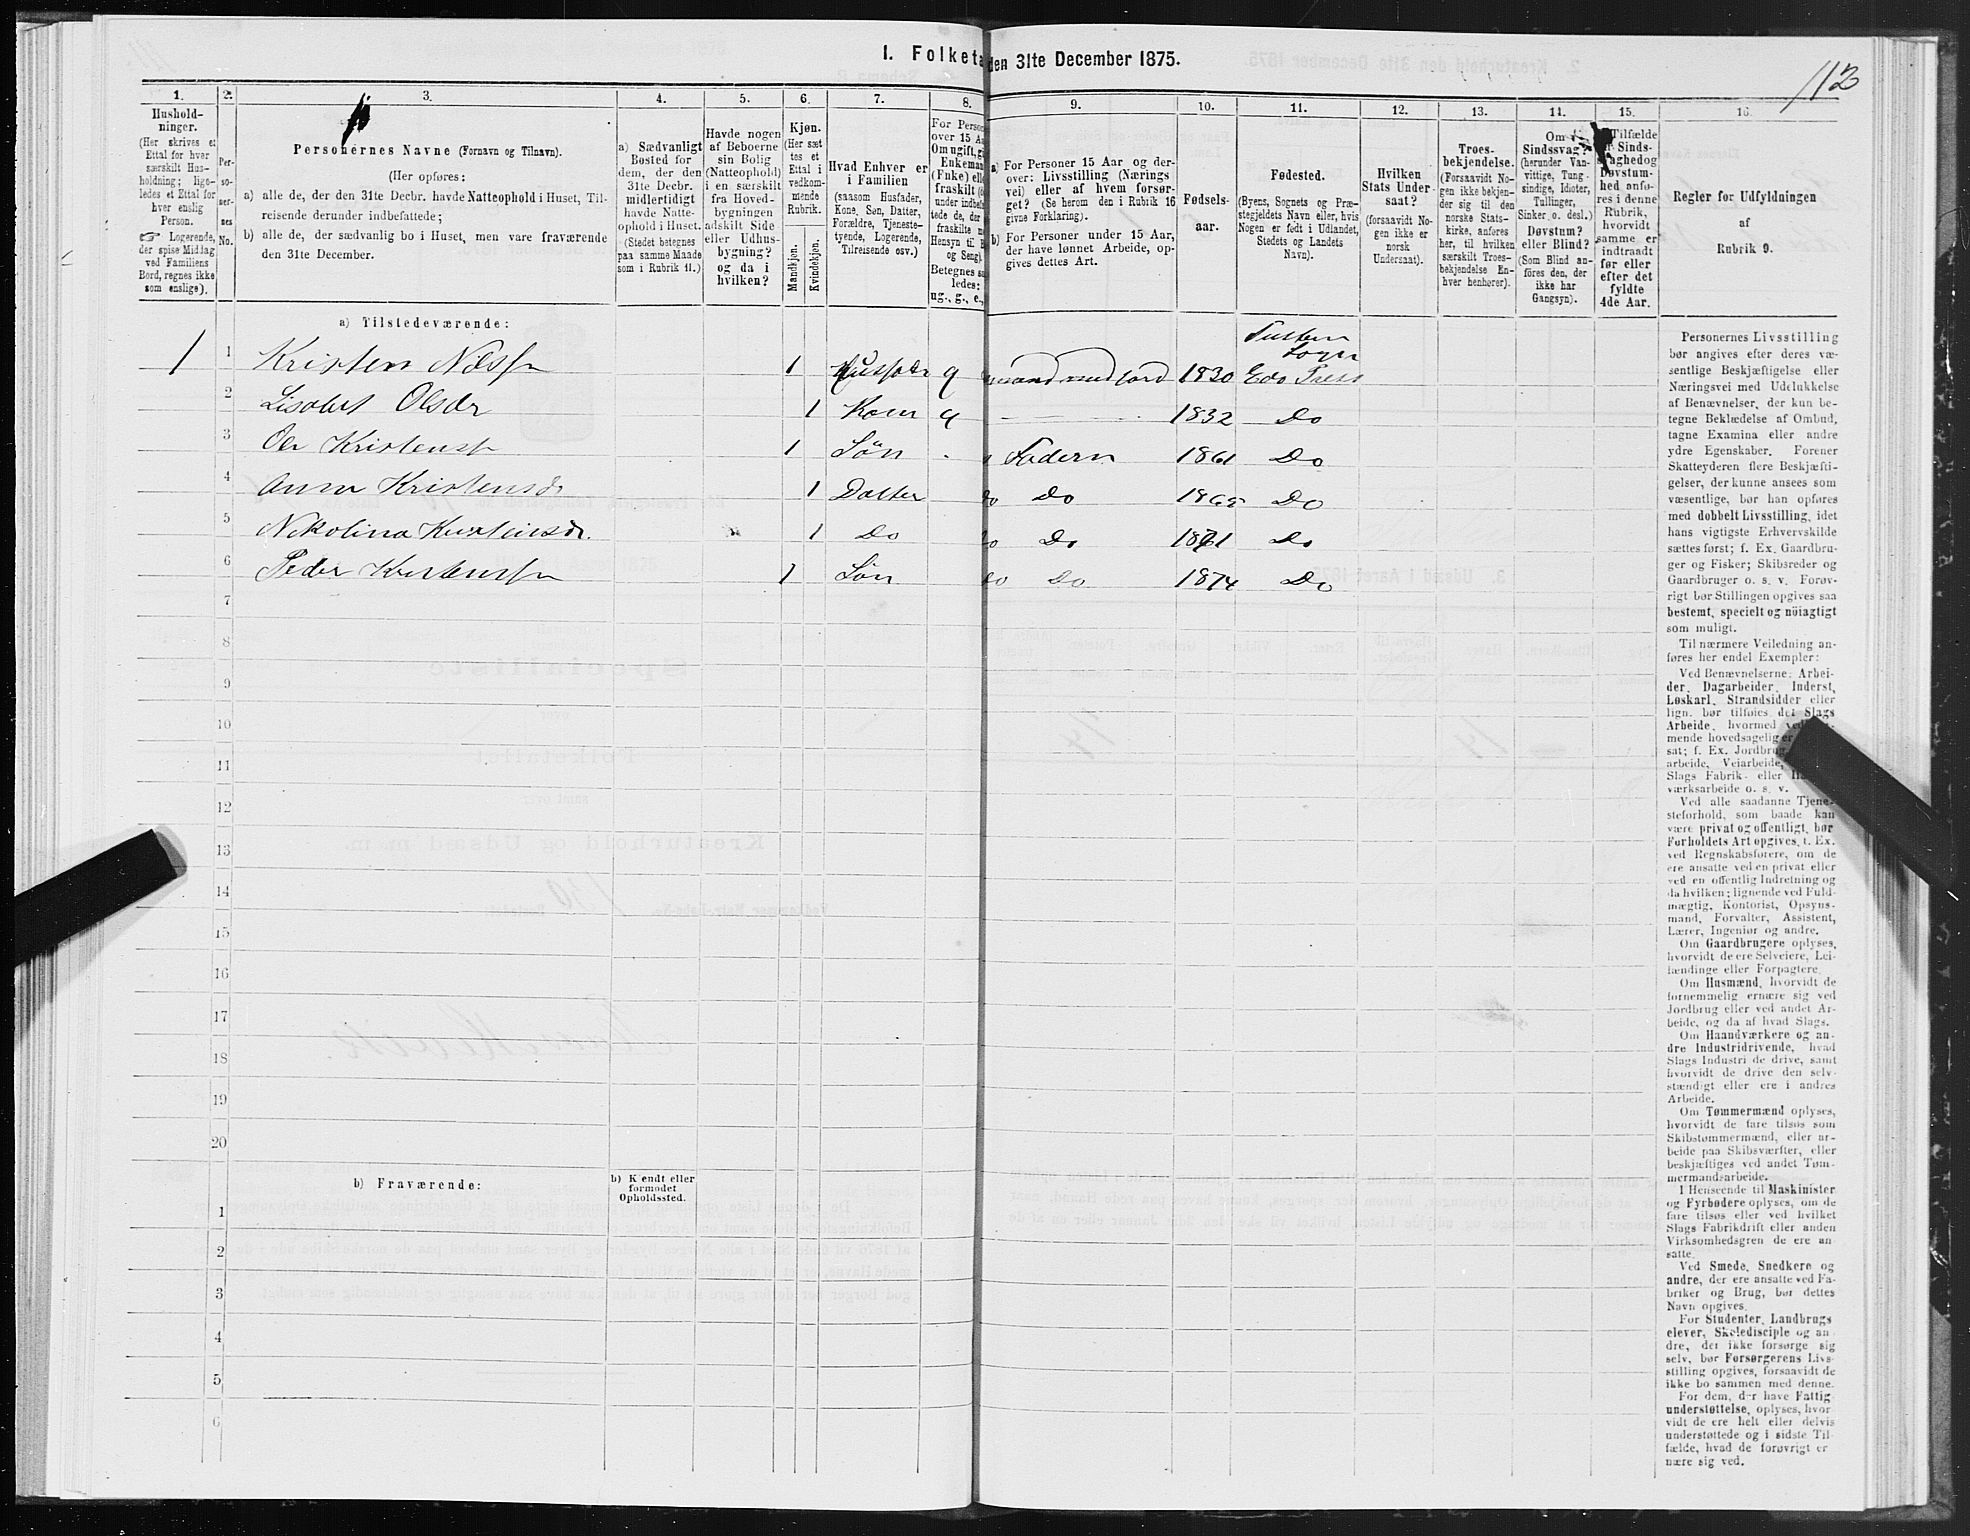 1. Folketa
den 31te December 1875.
112
1.
2.
3.
4.
5.
6.
7.
8.
9.
10.
11.
12.
13.
14.
15.
16.
Hushold-
ninger.
(Her skrives et
Ettal for hver
særskilt Hus-
holdning; lige-
ledes et Ettal for
hver enslig
Person.
Logerende,
der spise Middag
ved Familiens
Bord, regnes ikke
som enslige).
Per-
so-
ner-
nes
No.
Personernes Navne (Fornavn og Tilnavn).
(Her opføres:
a) alle de, der den 31te Decbr. havde Natteophold i Huset, Til-
reisende derunder indbefattede;
b) alle de, der sædvanlig bo i Huset, men vare fraværende
den 31te December.
a) Sædvanligt
Bosted for
dem, der den
31te Decbr.
midlertidigt
havde Natte-
ophold i Huset.
(Stedet betegnes
paa samme Maade
som i Rubrik 11.)
Havde nogen
af Beboerne
sin Bolig
(Natteophold)
i en særskilt
fra Hoved-
bygningen
adskilt Side
eller Udhus-
bygning?
og da i
hvilken?
Kjøn.
(Her sæt
tes et
Ettal i
vedkom-
mende
Rubrik.
Mandkjøn.
Kvindekjøn.
Hvad Enhver er
i Familien
(saasom Husfader,
Kone, Søn, Datter,
Forældre, Tjeneste-
tyende, Logerende,
Tilreisende osv.)
For Person
over 15 Aa
Om ugift, gi
Enkeman
(Enke) elle
fraskilt
Betegnes sa
ledes:
ug., g., e.,
a) For Personer 15 Aar og der-
over: Livsstilling (Nærings
vei) eller af hvem forsør-
get? (Se herom den i Rubrik 16
givne Forklaring).
b) For Personer under 15 Aar,
der have lønnet Arbeide, op-
gives dettes Art.
Fødsels-
aar.
Fødested.
(Byens, Sognets og Præ-
stegjeldets Navn eller, hvis
Nogen er født i Udlandet,
Stedets og Landets
Navn).
Hvilken
Stats Under-
saat?
(forsaavidt No-
gen ikke er
norsk
Undersaat).
Troes-
bekjendelse.
(Forsaavidt No-
gen ikke bekjen-
der sig til den
norske Stats-
kirke, anføres
her, til hvilken
særskilt Troes-
bekjendelse En-
hver henhører).
Om
Sindssvag?
(herunder Van-
vittige, Tung-
sindige, Idioter,
Tullinger,
Sinker o. desl.)
Døvstum?
eller Blind?
(Som Blind an-
føres den, der
ikke har
Gangsyn).
Tilfælde
Sinds-
svaghed og
Døvstum-
hed anfø-
res i denne
Rubrik,
hvorvidt
samme er
indtraadt
før eller
efter det
fyldte
4de Aar.
Regler for Udfyldningen
af
Rubrik 9.
a) Tilstedeværende:
1 1 Kristen Nilss 1 Husfader g mand med jord 1830 Edø Præst
2 Lisabet Olsdr 1 Kone g 1832 Do
3 Ole Kristenss 1 Søn Faderen 1861 Do
4 Anne Kristensdr 1 Datter do Do Do
5 Nikolina Kristensdr. 1 Do Do 1871 Do
6 Peder Kristenss 1 Søn do Do 1874 Do
7
8
9
10
11
12
13
14
15
16
17
18
19
20
b) Fraværende:
b) Kjendt eller
formodet
Opholdssted.
1
2
3
4
5
6
Personernes Livsstilling
bør angives efter deres væ-
sentlige Beskjæftigelse eller
Næringsvei med Udelukkelse
af Benævnelser, der kun be-
tegne Beklædelse af Ombud,
tagne Examina eller andre
ydre Egenskaber. Forener
Skatteyderen flere Beskjæfti-
gelser, der kunne ansees som
væsentlige, bør han opføres
med dobbelt Livsstilling, idet
hans vigtigste Erhvervskilde
sættes først; f. Ex. Gaardbru-
ger og Fisker; Skibsreder og
Gaardbruger o. s. v. Forøv-
rigt bør Stillingen opgives saa
bestemt, specielt og nöiagtigt
som muligt.
Til nærmere Veiledning an-
føres her endel Exempler:
Ved Benævnelserne: Arbei-
der, Dagarbeider, Inderst,
Løskarl, Strandsidder eller
lign. bør tilføies det Slags
Arbeide, hvormed
mende hovedsagelig er
sat; f. Ex. Jordbrug
arbeide, Veiarbeide,
Slags Fabrik- eller
værksarbeide o. s. v.
Ved alle saadanne Tjene-
steforhold, som baade kan
være privat og offentligt, bør
Forholdets Art opgives, f. Ex.
ved Regnskabsførere, om de
ere ansatte ved en privat eller
ved en offentlig Indretning og
da hvilken; lignende ved Fuld-
mægtig, Kontorist, Opsyns-
mand, Forvalter, Assistent,
Lærer, Ingeniør og andre.
Om Gaardbrugere oplyses,
hvorvidt de ere Selveiere, Lei-
lændinge eller Forpagtere.
Om Husmænd, hvorvidt de
fornemmelig ernære sig ved
Jordbrug eller ved andet Ar-
beide, og da af hvad Slags.
Om Haandværkere og an-
dre Industridrivende, hvad
Slags Industri de drive, samt
hvorvidt de drive den selv-
stændigt eller ere i andres
Arbeide.
Om Tømmermænd oplyses,
hvorvidt de fare tilsøs som
Skibstømmermænd, eller ar-
beide paa Skibsværfter, eller
beskjæftiges ved andet Tøm-
mermandsarbeide.
I Henseende til Maskinister
og Fyrbødere oplyses, om de
fare tilsøs eller ved hvilket
Slags Fabrikdrift eller anden
Virksomhedsgren de ere an-
satte.
Ved Smede, Snedkere og
andre, der ere ansatte ved Fa-
briker og Brug, bør dettes
Navn opgives.
For Studenter, Landbrugs
elever, Skoledisciple og an
dre, der ikke forsørge sig
selv, bør Forsørgerens Livs-
stilling opgives, forsaavidt de
ikke bo sammen med denne.
For dem, der have Fattig
understøttelse, oplyses, hvor
vidt de ere helt eller delvis
understøttede og i sidste Til-
fælde, hvad de forøvrigt er
nære sig ved.